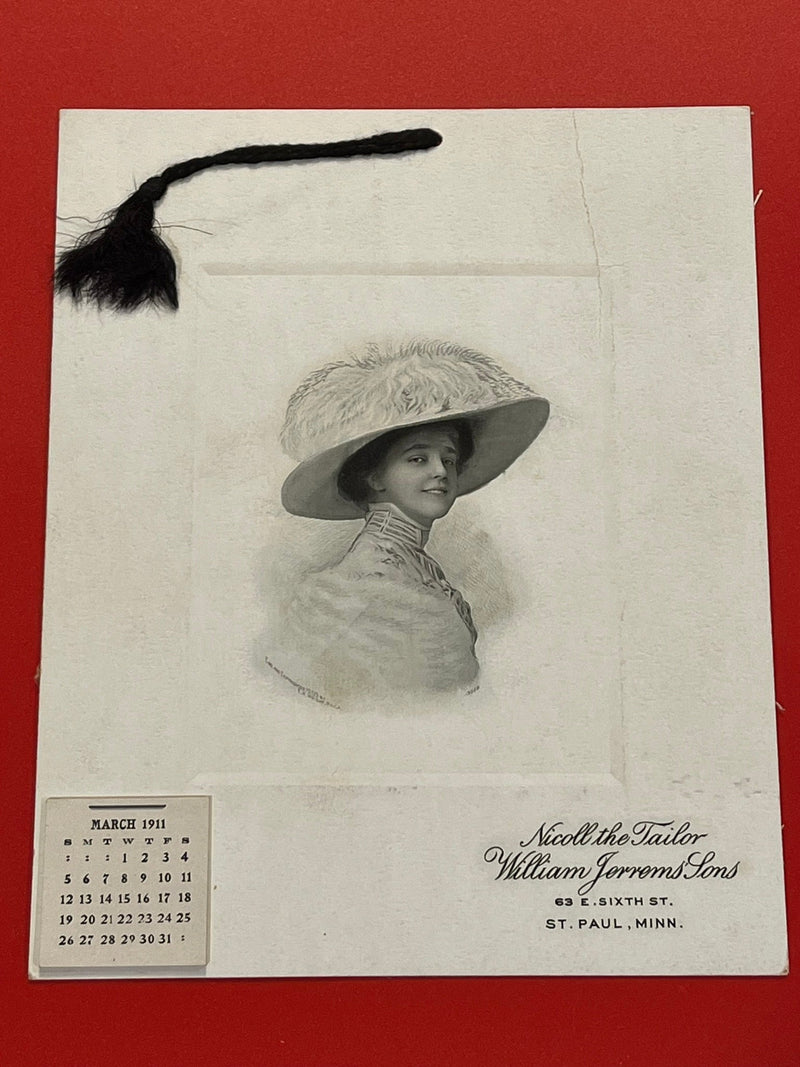 MARCH 1911
S M T W T F S
: : : 1 2 3 4
5 6 7 8 9 10 11
12 13 14 15 16 17 18
19 20 21 22 23 24 25
26 27 28 29 30 31 :
Nicoll the Tailor
William Jerrems Sons
63 E. SIXTH ST.
ST. PAUL, MINN.